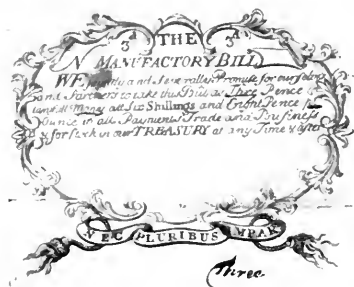 3d THE 3d
N MANUFACTORY BILL
WE and Severally Promise for ourselves
and Partners to take this Bill as Three Pence
Money att Six Shillings and Eight Pence
Ounce in all Payments Trade and Business
& for in our TREASURY at any Time after
NEC PLURIBUS IMPAR
Three